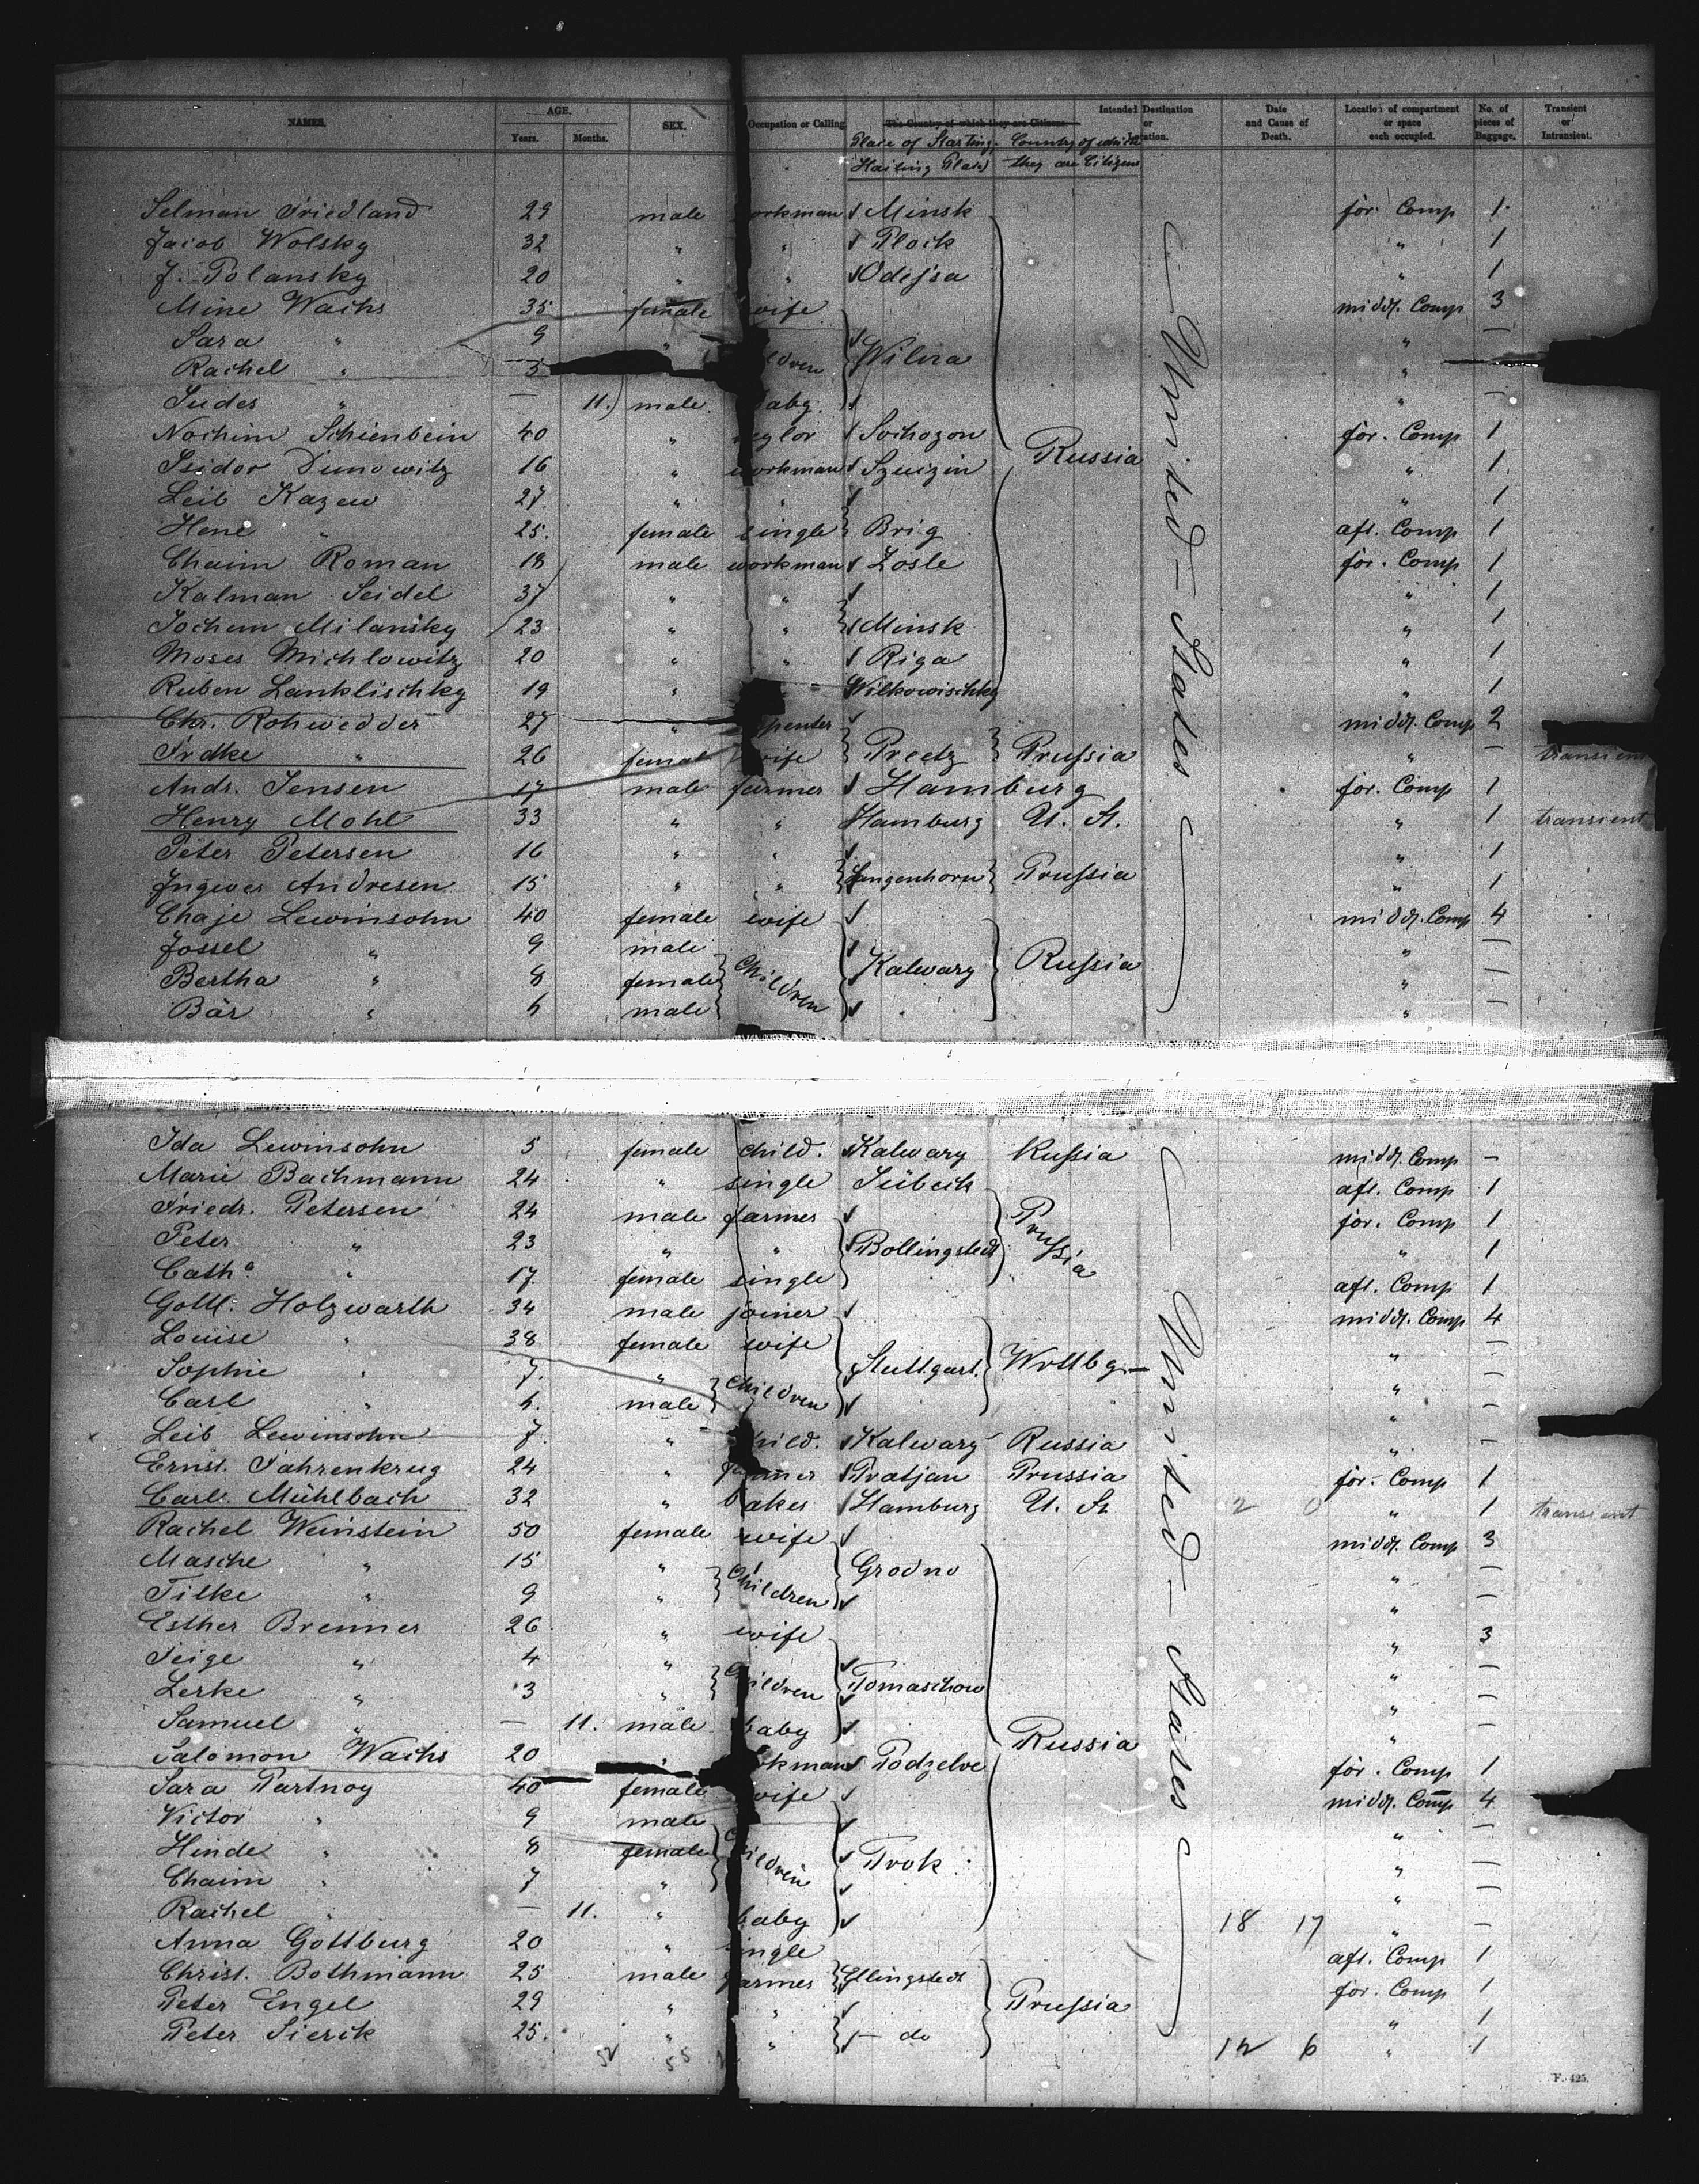 NAMES. AGE. Years. Months. SEX. Occupation or Calling The Country of which they are Citizens. Intended Destination or Location. Date and Cause of Death. Location of compartment or space each occupied. No. of pieces of Baggage. Transient or Intransient.
Place of Starting. Country of which
Hailing Place) they are Citizens
Selman Friedland 29 male workman Minsk for. Comp 1
Jacob Wolsky 32 " " Plock " 1
J. Polansky 20 " " Odeſsa " 1
Mine Wachs 35 female wife middl. Comp 3
Sara " 9 " " —
Rachel " 5 children Wilna "
Judes " — 11. male baby " —
Nochim Schienbein 40 " Sochozon for. Comp 1
Isidor Dunowitz 16 " workman Szuizin Russia " 1
Leib Kazew 27 " " " 1
Hene " 25. female single Brig aft. Comp 1
Chaim Roman 18 male workman Zosle for. Comp 1
Kalman Seidel 37 " " " 1
Jochem Milansky 23 " " Minsk " 1
Moses Michlowitz 20 " " Riga " 1
Ruben Lanklischky 19 " Wilkowischky " 1
Chr. Rohwedder 27 " middl. Comp 2
Frdke " 26 female wife Preetz Pruſsia " — transient
Andr. Jensen 17 male farmer Hamburg for. Comp 1
Henry Mohl 33 " " Hamburg U. St. " 1 transient
Peter Petersen 16 " " " 1
Ingwer Andresen 15 " " Langenhorn Pruſsia " 1
Chaje Lewinsohn 40 female wife middl. Comp 4
Jossel " 9 male " —
Bertha " 8 female Children Kalwary Ruſsia " —
Bär " 6 male " —
United-States
Ida Lewinsohn 5 female child. Kalwary Ruſsia middl. Comp —
Marie Bachmann 24 " single Lübeck aft. Comp 1
Friedr. Petersen 24 male farmer for. Comp 1
Peter " 23 " " Bollingstedt Pruſsia " 1
Cath.a " 17. female single aft. Comp 1
Gottl. Holzwarth 34 male joiner middl. Comp 4
Louise " 38 female wife " —
Sophie " 7. " Children Stuttgart. Wrttbg— " —
Carl " male " —
Leib Lewinsohn 7. " child. Kalwary Russia " —
Ernst. Fahrenkrug 24 " farmer Pratjau Prussia for. Comp 1
Carl Mühlbach 32 " baker Hamburg U. St 2 0 " 1 transient
Rachel Weinstein 50 female wife middl. Comp 3
Masche " 15 " Children Grodno " —
Tilke " 9 " " —
Esther Brenner 26 " wife " 3
Feige " 4 " " —
Lerke " 3 " children Tomaschow " —
Samuel " — 11. male baby " —
Salomon Wachs 20 " workman Podzelve Russia for. Comp 1
Sara Partnoy 40 female wife middl. Comp 4
Victor " 9 male " —
Hinde " 8 female children Trok " —
Chaim " 7 " "
Rachel " — 11. " baby 18 17 " —
Anna Gottburg 20 " single aft. Comp 1
Christ. Bothmann 25 male farmer Ellingstedt for. Comp 1
Peter Engel 29 " " Pruſsia " 1
Peter Sierck 25. " " — do 12 6 " 1
United-States
55
F. 425.